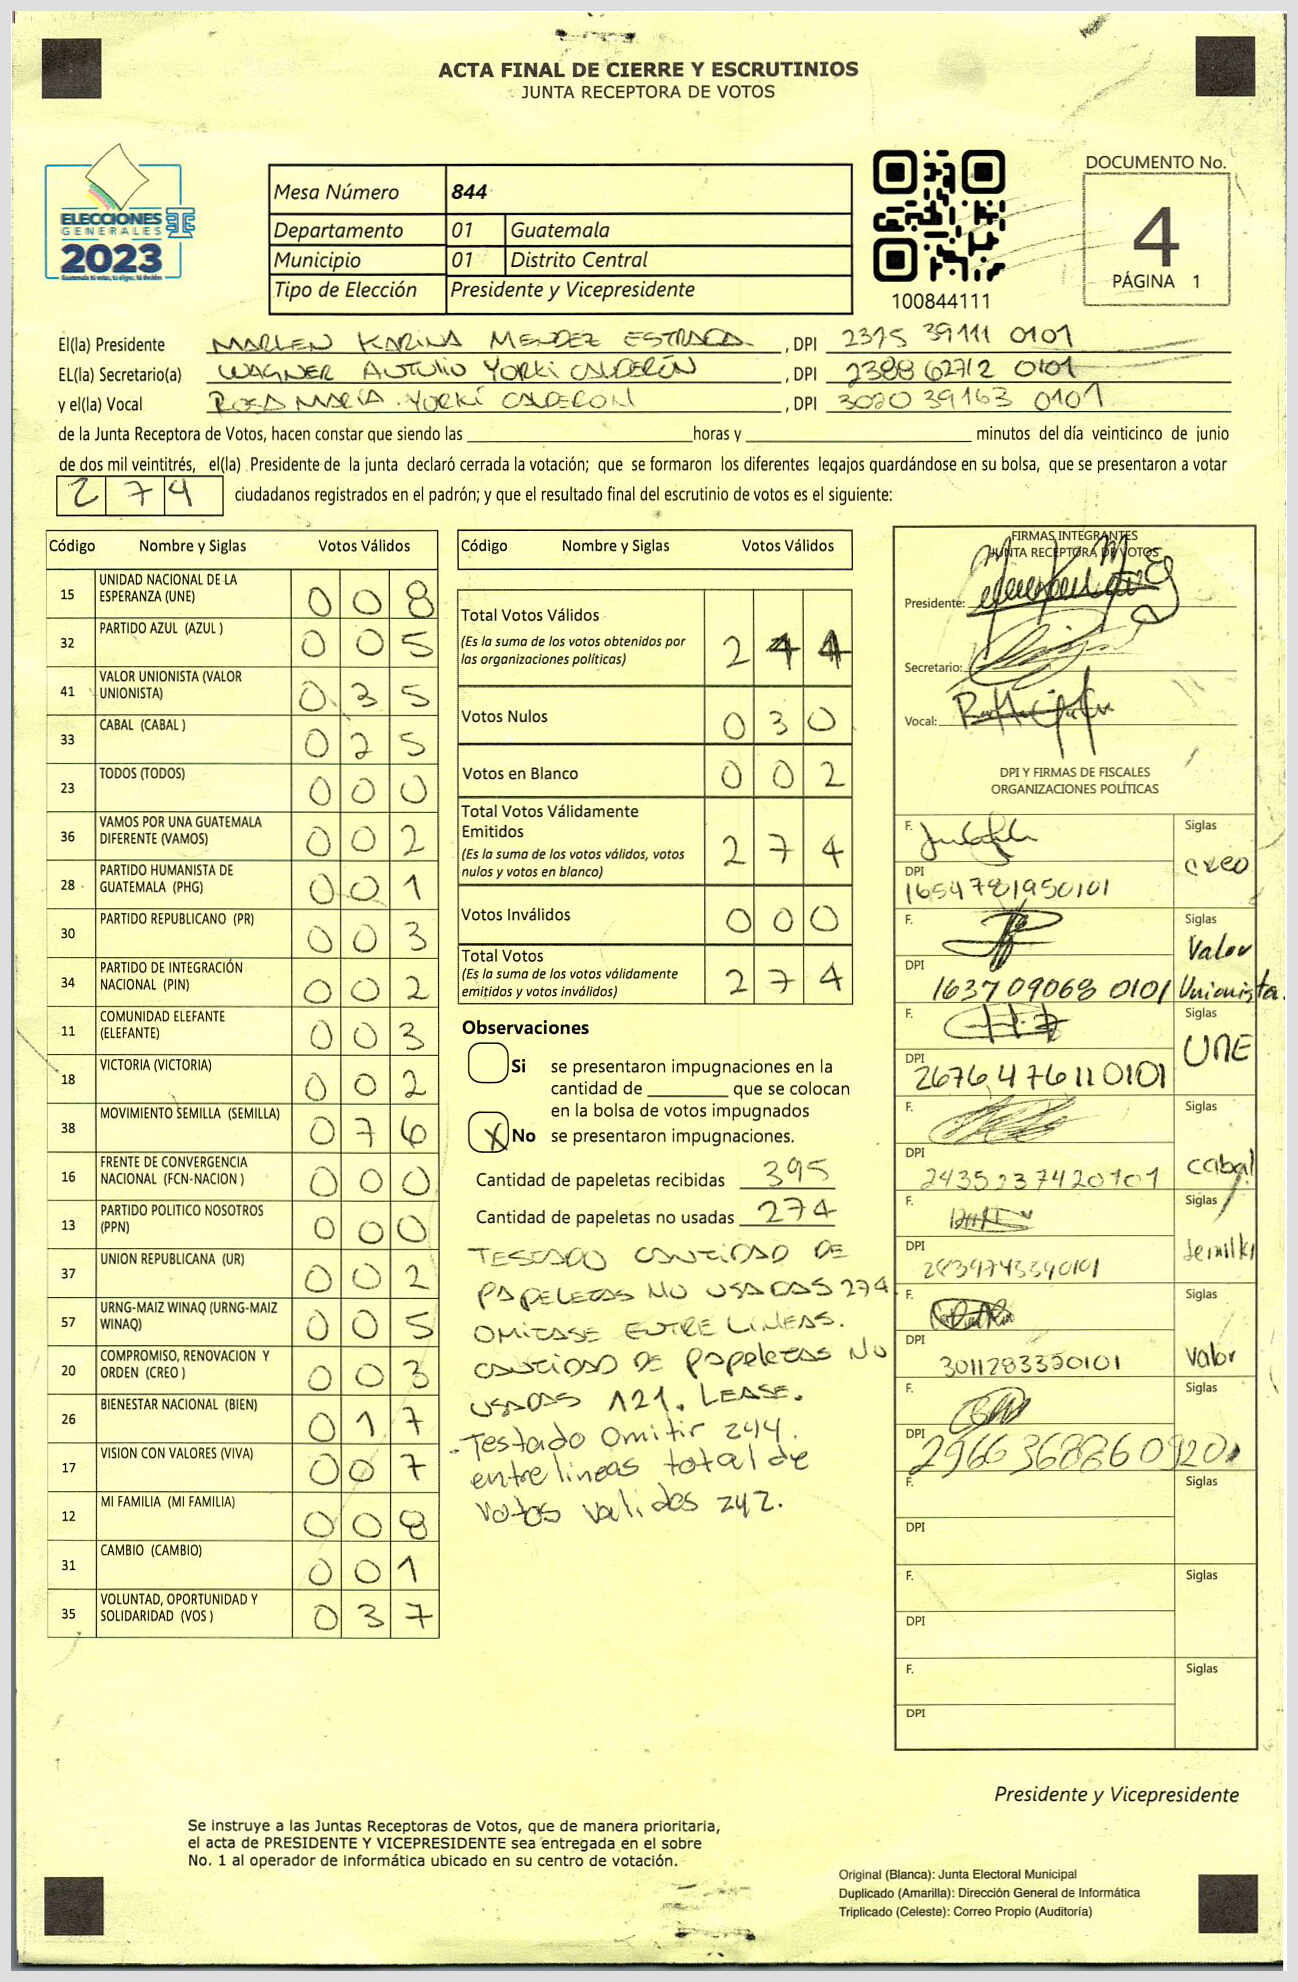 ACTA FINAL DE CIERRE Y ESCRUTINIOS
JUNTA RECEPTORA DE VOTOS
ELECCIONES
GENERALES
2023
Mesa Número 844
Departamento 01 Guatemala
Municipio 01 Distrito Central
Tipo de Elección Presidente y Vicepresidente
100844111
DOCUMENTO No.
4
PÁGINA 1
El(la) Presidente MARLEN KARINA MENDEZ ESTRADA , DPI 2375 39111 0101
EL(la) Secretario(a) WAGNER ANTULIO YORKI CALDERÓN , DPI 2388 62712 0101
y el(la) Vocal ROSA MARÍA YORKÍ CALDERON , DPI 3020 39163 0101
de la Junta Receptora de Votos, hacen constar que siendo las horas y minutos del día veinticinco de junio
de dos mil veintitrés, el(la) Presidente de la junta declaró cerrada la votación; que se formaron los diferentes legajos guardándose en su bolsa, que se presentaron a votar
274 ciudadanos registrados en el padrón; y que el resultado final del escrutinio de votos es el siguiente:
Código Nombre y Siglas Votos Válidos
15 UNIDAD NACIONAL DE LA ESPERANZA (UNE) 008
32 PARTIDO AZUL (AZUL ) 005
41 VALOR UNIONISTA (VALOR UNIONISTA) 035
33 CABAL (CABAL ) 025
23 TODOS (TODOS) 000
36 VAMOS POR UNA GUATEMALA DIFERENTE (VAMOS) 002
28 PARTIDO HUMANISTA DE GUATEMALA (PHG) 001
30 PARTIDO REPUBLICANO (PR) 003
34 PARTIDO DE INTEGRACIÓN NACIONAL (PIN) 002
11 COMUNIDAD ELEFANTE (ELEFANTE) 003
18 VICTORIA (VICTORIA) 002
38 MOVIMIENTO SEMILLA (SEMILLA) 076
16 FRENTE DE CONVERGENCIA NACIONAL (FCN-NACION ) 000
13 PARTIDO POLITICO NOSOTROS (PPN) 000
37 UNION REPUBLICANA (UR) 002
57 URNG-MAIZ WINAQ (URNG-MAIZ WINAQ) 005
20 COMPROMISO, RENOVACION Y ORDEN (CREO ) 003
26 BIENESTAR NACIONAL (BIEN) 017
17 VISION CON VALORES (VIVA) 007
12 MI FAMILIA (MI FAMILIA) 008
31 CAMBIO (CAMBIO) 001
35 VOLUNTAD, OPORTUNIDAD Y SOLIDARIDAD (VOS ) 037
Código Nombre y Siglas Votos Válidos
Total Votos Válidos 244
(Es la suma de los votos obtenidos por
las organizaciones políticas)
Votos Nulos 030
Votos en Blanco 002
Total Votos Válidamente
Emitidos 274
(Es la suma de los votos válidos, votos
nulos y votos en blanco)
Votos Inválidos 000
Total Votos 274
(Es la suma de los votos válidamente
emitidos y votos inválidos)
Observaciones
Si se presentaron impugnaciones en la
cantidad de que se colocan
en la bolsa de votos impugnados
X No se presentaron impugnaciones.
Cantidad de papeletas recibidas 395
Cantidad de papeletas no usadas 274
TESTADO CANTIDAD DE
PAPELETAS NO USADAS 274
OMITASE ENTRE LINEAS.
CANTIDAD DE PAPELETAS NO
USADAS 121. LEASE.
- Testado Omitir 244.
entre lineas total de
votos validos 242.
FIRMAS INTEGRANTES
JUNTA RECEPTORA DE VOTOS
Presidente:
Secretario:
Vocal:
DPI Y FIRMAS DE FISCALES
ORGANIZACIONES POLÍTICAS
F. Siglas
creo
DPI 1654781950101
F. Siglas
Valor
DPI 163709068 0101 Unionista.
F. Siglas
UNE
DPI 2676 476110101
F. Siglas
DPI 2435237420101 cabal
F. Siglas
DPI 2839743340101 Semilla
F. Siglas
DPI 3011283350101 valor
F. Siglas
DPI 2966368860920
F. Siglas
DPI
F. Siglas
DPI
F. Siglas
DPI
Presidente y Vicepresidente
Se instruye a las Juntas Receptoras de Votos, que de manera prioritaria,
el acta de PRESIDENTE Y VICEPRESIDENTE sea entregada en el sobre
No. 1 al operador de informática ubicado en su centro de votación.
Original (Blanca): Junta Electoral Municipal
Duplicado (Amarilla): Dirección General de Informática
Triplicado (Celeste): Correo Propio (Auditoría)